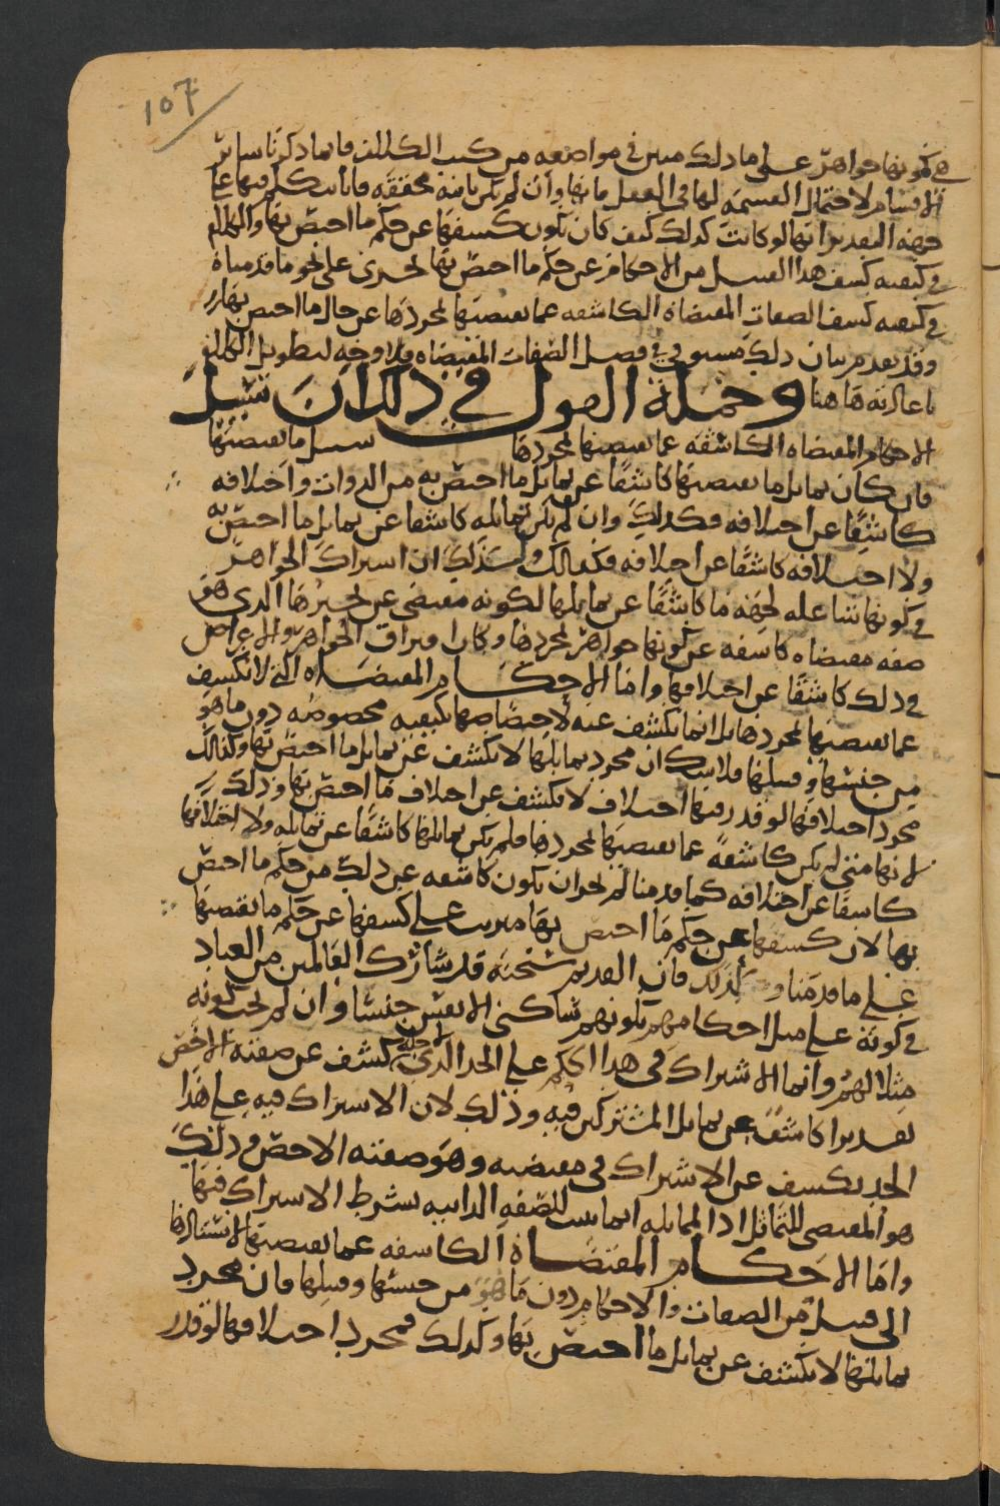 107
في كونها جواهر على ما ذلك مبين في مواضعه من كتب الكلام فاما ما ذكرنا سائر
الاقسام لاحتمال القسمة لها في العقل فاما وان لم تكن ثابتة محققة فانا نتكلم فيها على
جهة التقدير انها لو كانت كذلك كيف كان يكون كشفها عن حكم ما اختص بها والكلام
في كيفية كشف هذا القبيل من الاحكام عن حكم ما اختص بها يجري على نحو ما قدمناه
في كيفية كشف الصفات المقتضاة الكاشفة عما يقتضيها بمجردها عن حال ما اختص بها
وقد تقدم بيان ذلك مستوفى في فصل الصفات المقتضاة فلا وجه لتطويل الكلام
باعادته هاهنا وجملة القول في ذلك ان سبيل
الاحكام المقتضاة الكاشفة عما يقتضيها بمجردها سبيل ما يقتضيها
فان كان تماثل ما يقتضيها كاشفا عن تماثل ما اختص به من الذوات واختلافه
كاشفا عن اختلافه فكذلك وان لم يكن تماثله كاشفا عن تماثل ما اختص به
ولا اختلافه كاشفا عن اختلافه فكذلك ان اشتراك الجواهر
في كونها شاغلة لجهة ما كاشفا عن تماثلها لكونه مقتضى عن تحيزها الذي هو
صفة مقتضاة كاشفة عن كونها جواهر بمجردها وكان افتراق الجواهر والاعراض
في ذلك كاشفا عن اختلافها واما الاحكام المقتضاة التي لا تكشف
عما يقتضيها بمجردها بل انما تكشف عنه لاختصاصها بكيفية مخصوصة دون ما هو
من جنسها وقبيلها فلا شك ان مجرد تماثلها لا يكشف عن تماثل ما اختص بها وكذلك
مجرد اختلافها لو قدر فيها اختلاف لا يكشف عن اختلاف ما اختص بها وذلك
لانها متى لم تكن كاشفة عما يقتضيها بمجردها فلم يكن تماثلها كاشفا عن تماثله ولا اختلافها
كاشفا عن اختلافه كما قدمنا لم يجز ان تكون كاشفة عن ذلك من حكم ما اختص
بها لان كشفها عن حكم ما اختص بها مترتب على كشفها عن حكم ما يقتضيها
على ما قدمنا وكذلك فان القديم سبحانه قد شارك العالمين من العباد
في كونه على مثل احكامهم بكونهم ساكني الانفس جنسا وان لم يجب كونه
مثلا لهم وانما الاشتراك في هذا الحكم على الحد الذي لاجله يكشف عن صفته الاخص
تقديرا كاشفا عن تماثل المشتركين فيه وذلك لان الاشتراك فيه على هذا
الحد يكشف عن الاشتراك في مقتضيه وهو صفته الاخص وذلك
هو المقتضي للتماثل اذ المماثلة انما تثبت للصفة الذاتية بشرط الاشتراك فيها
واما الاحكام المقتضاة الكاشفة عما يقتضيها لاستنادها
الى قبيل من الصفات والاحكام دون ما هو من جنسها وقبيلها فان مجرد
تماثلها لا يكشف عن تماثل ما اختص بها وكذلك فمجرد اختلافها لو قدر